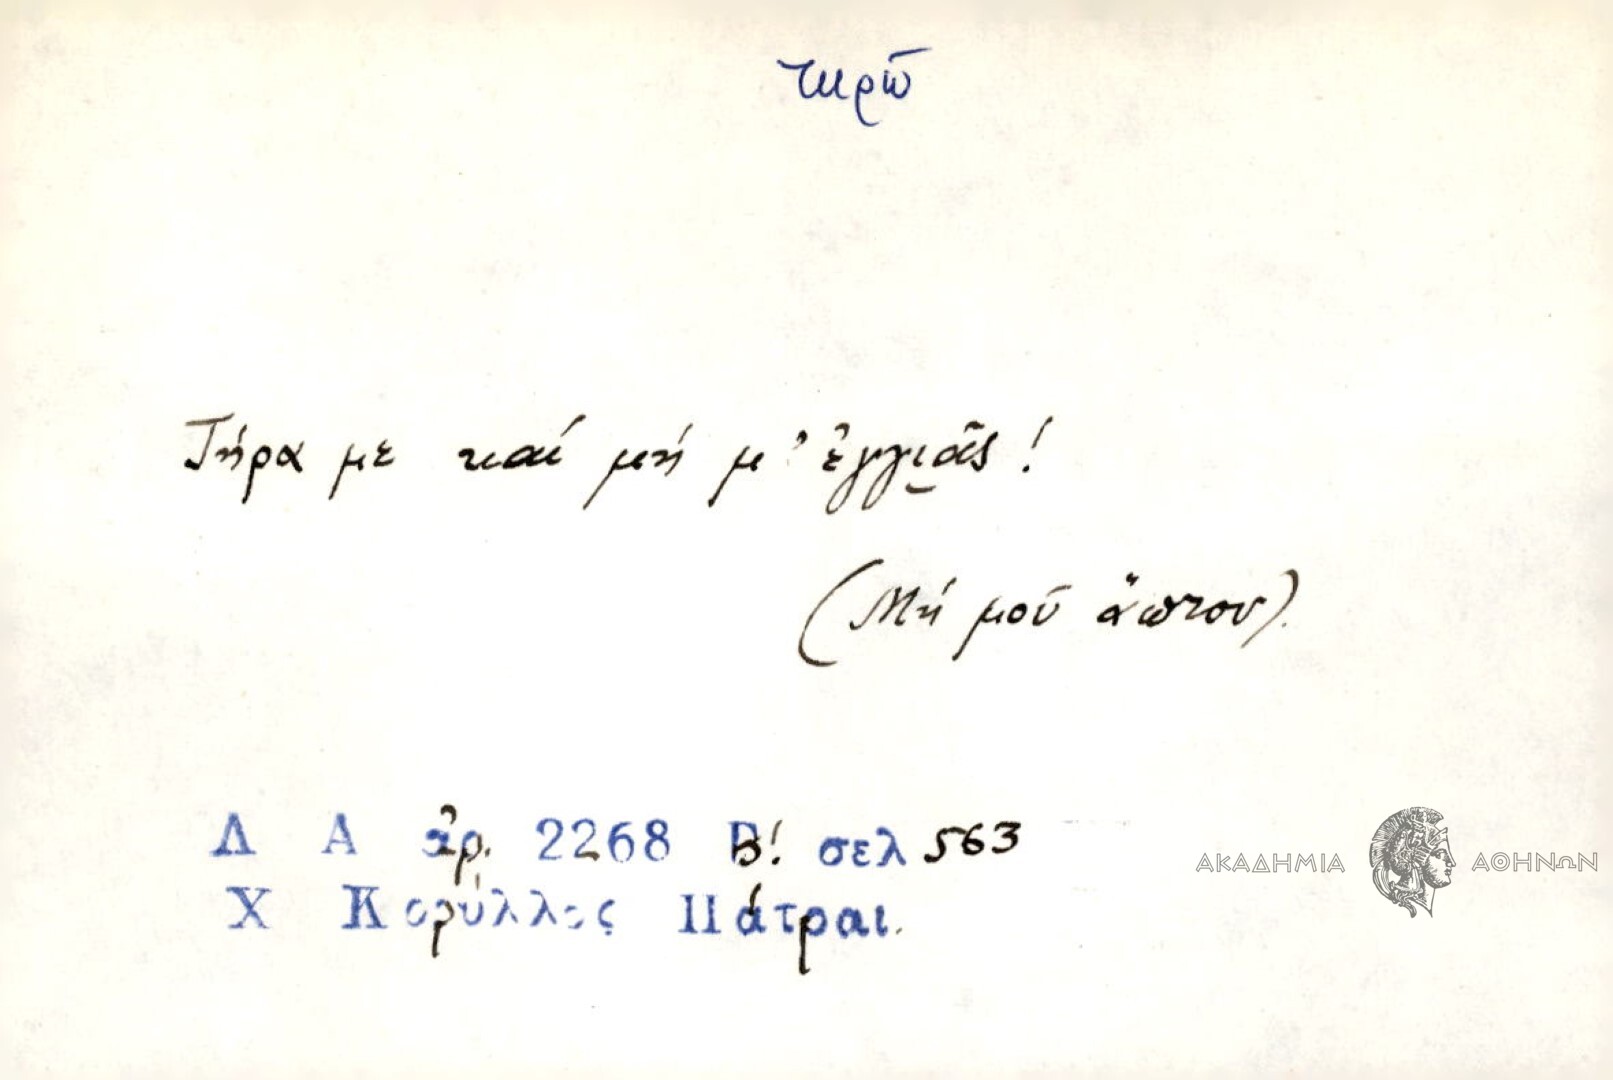 τηρῶ
Τήρα με καί μή μ' ἐγγιᾶς!
(Μή μοῦ ἅπτου).
Λ Α ἀρ. 2268 Β! σελ 563
Χ Κορύλλος Πάτραι.
ΑΚΑΔΗΜΙΑ ΑΘΗΝΩΝ